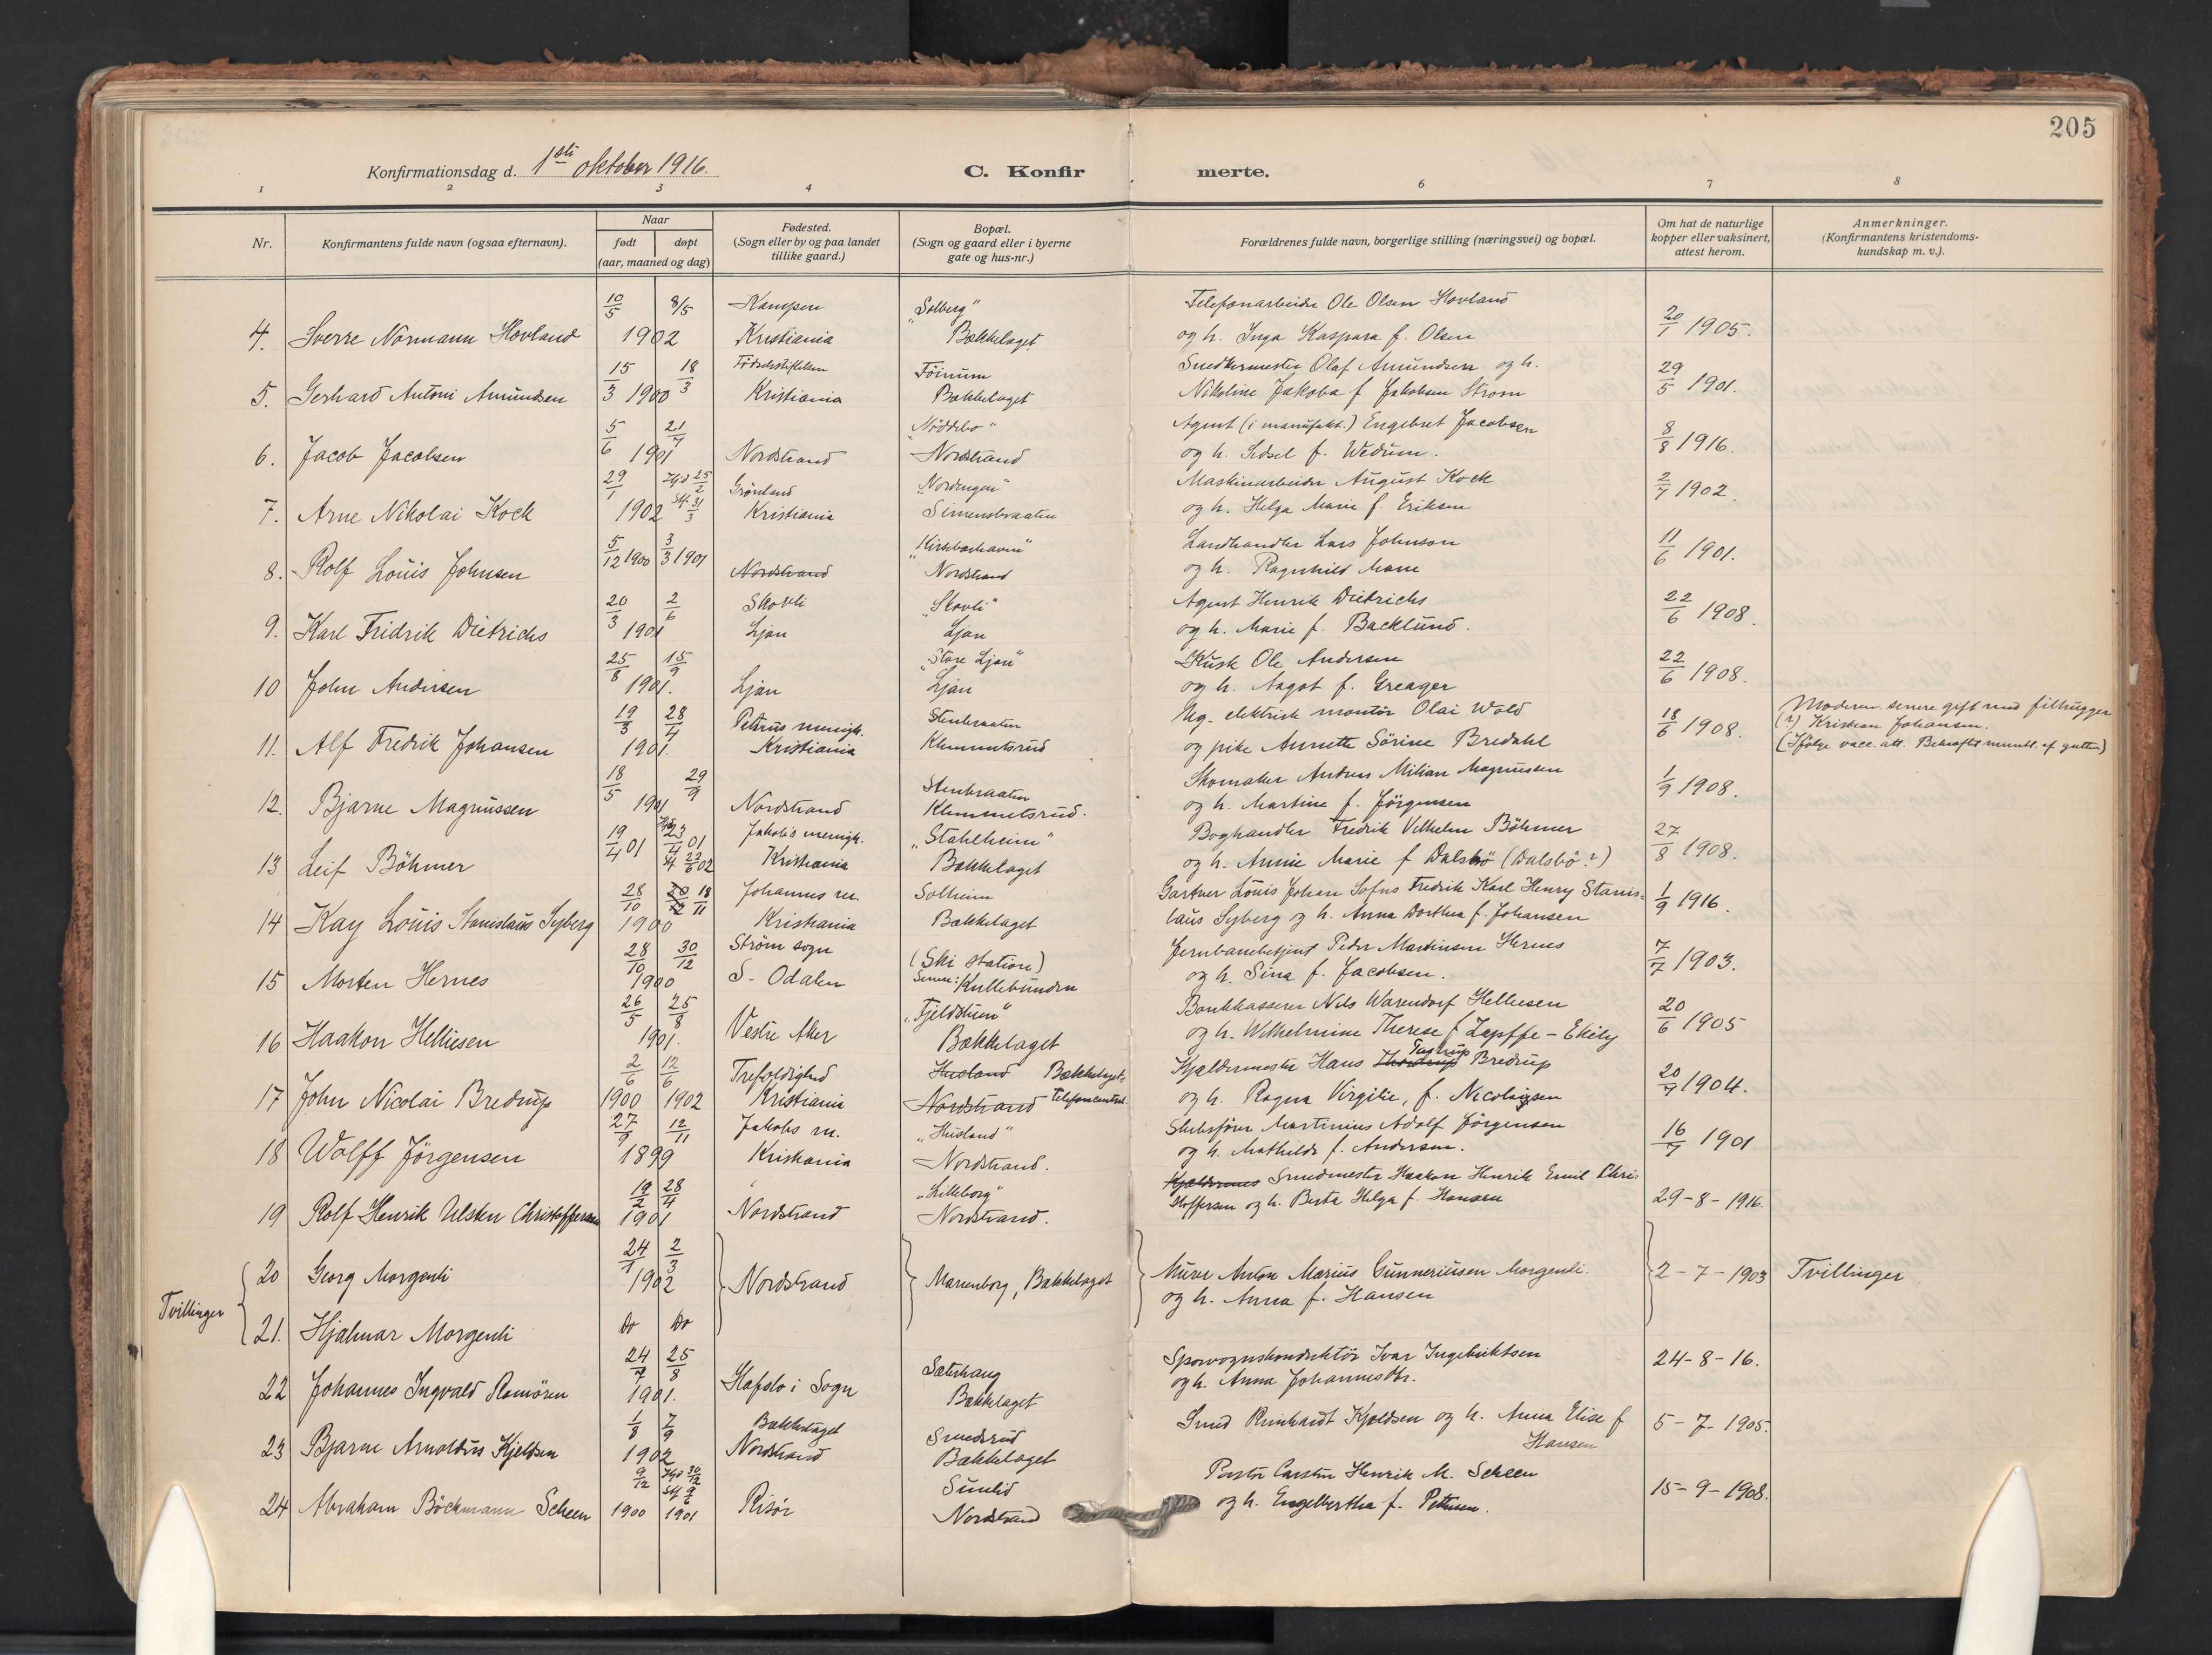 205
Konfirmationsdag d. 1ste oktober 1916.
C. Konfir merte.
1 2 3 4 6 7 8
Nr.
Konfirmantens fulde navn (ogsaa efternavn).
Naar
født døpt
(aar, maaned og dag)
Fødested.
(Sogn eller by og paa landet
tillike gaard.)
Bopæl.
(Sogn og gaard eller i byerne
gate og hus-nr.)
Forældrenes fulde navn, borgerlige stilling (næringsvei) og bopæl.
Om hat de naturlige
kopper eller vaksinert,
attest herom.
Anmerkninger.
(Konfirmantens kristendoms-
kundskap m. v.).
10/5 8/5 Kampen "Solberg" Telefonarbeider Ole Olsen Hovland
4. Sverre Normann Hovland 1902 Kristiania Bækkelaget og h. Inga Kaspara f. Olsen 20/1 1905.
15/3 18/3 Fødselsstiftelsen Föinum Snedkermester Olaf Amundsen og h.
5. Gerhard Antoni Amundsen 1900 Kristiania Bækkelaget Nikoline Jakoba f. Jakobsen Strom 29/5 1901.
5/6 21/7 "Nöddebo" Agent (i manufakt.) Engebret Jacobsen
6. Jacob Jacobsen 1901 Nordstrand Nordstrand og h. Sidsel f. Wedum. 8/8 1916.
29/1 Hjd 25/2 Grönland "Nordengen" Maskinarbeider August Kock
7. Arne Nikolai Kock 1902 St. 31/3 Kristiania Simensbraaten og h. Helga Marie f. Eriksen 2/7 1902.
5/12 1900 3/3 1901 "Kirsebærhaven" Landhandler Lars Johnson
8. Rolf Louis Johnsen Nordstrand Nordstrand og h. Ragnhild Marie 11/6 1901.
20/3 2/6 Skovli "Skovli" Agent Henrik Dietrichs
9. Karl Fridrik Dietrichs 1901 Ljan Ljan og h. Marie f. Backlund. 22/6 1908.
25/8 15/9 "Store Ljan" Kusk Ole Andersen
10 John Andersen 1901. Ljan Ljan og h. Aagot f. Greager 22/6 1908.
19/3 28/4 Petrus menigh. Stenbraaten Ug. elektrisk montör Olai Wold Moderen senere gift med filhugger
11. Alf Fredrik Johansen 1901. Kristiania Klemmetsrud og pike Annette Sörine Bredahl 18/6 1908. (?) Kristian Johansen.
(Ifölge vacc. att. Bekræftet mundt. af gutten)
18/5 29/9 Stenbraaten Skomaker Anders Milian Magnussen
12. Bjarne Magnussen 1901 Nordstrand Klemmetsrud. og h. Martine f. Jörgensen 1/9 1908.
19/4 01 Hjd 23/4 01 Jakobs menigh. "Stahlheim" Boghandler Fredrik Vilhelm Böhmer
13 Leif Böhmer St 22/6 02 Kristiania Bækkelaget og h. Annie Marie f Dalsbö (Dalsbö?) 27/8 1908.
28/10 18/11 Johannes m. Solheim Gartner Louis Johan Sofus Fredrik Karl Henry Stanis-
14 Kay Louis Stanislaus Syberg 1900 Kristiania Bækkelaget laus Syberg og h. Anna Dorthea f. Johansen 1/9 1916.
28/10 30/12 Ström sogn (Ski station) Jernbanebetjent Peder Martinsen Hernes
15 Morten Hernes 1900 S. Odalen Senere: Kullebunden og h. Sina f. Jacobsen. 7/7 1903.
26/5 25/8 "Fjeldstuen" Bankkasserer Nils Warendorf Helliesen
16 Haakon Helliesen 1901. Vestre Aker Bækkelaget og h. Wilhelmine Therese f Zapffe - Ekely 20/6 1905
2/6 12/6 Trefoldighed Husland Bækkelagets Kjældermester Hans Tastrup Bredrup
17 John Nicolai Bredrup 1900 1902 Kristiania Nordstrand Telefoncentral og h. Ragna Virgilie, f. Nicolaysen 20/7 1904.
27/9 12/11 Jakobs m. "Husland" Skibsförer Martinius Adolf Jörgensen
18 Wolff Jörgensen 1899 Kristiania Nordstrand. og h. Mathilde f. Andersen. 16/7 1901
19/2 28/4 "Lilleborg" Smedmester Haakon Henrik Emil Chri-
19 Rolf Henrik Ulsten Christoffersen 1901 Nordstrand Nordstrand. stoffersen og h. Berta Helga f. Hansen 29-8-1916.
24/1 2/3
20 Georg Morgenli 1902 Nordstrand Marienborg, Bækkelaget Murer Anton Marius Gunneriusen Morgenli. 2-7-1903 Tvillinger
og h. Anna f. Hansen
Tvillinger
21. Hjalmar Morgenli Do Do
24/7 25/8 Sæterhaug Sporvognskonduktör Ivar Ingebriktsen 24-8-16.
22 Johannes Ingvald Romören 1901. Hafslo i Sogn Bækkelaget og h. Anna Johannesdtr.
1/8 7/9 Bækkelaget Smedsrud Smed Reinhardt Kjeldsen og h. Anna Elise f 5-7-1905.
23 Bjarne Arnoldus Kjeldsen 1902 Nordstrand Bækkelaget Hansen
9/12 Hjd 30/12 Sunlid Pastor Carsten Henrik M. Scheen
24 Abraham Böckmann Scheen 1900 St 9/6 1901 Risör Nordstrand og h. Engelbertha f. Pettersen. 15-9-1908.